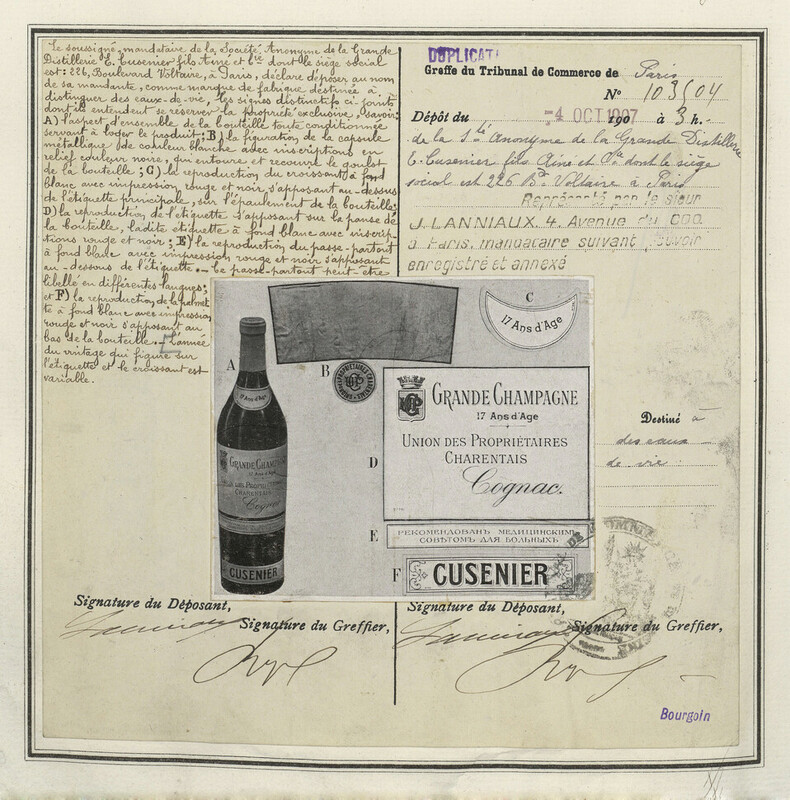 Le soussigné, mandataire de la Société Anonyme de la Grande
Distillerie E. Cusenier fils Aîné et Cie dont le siège social
est: 226, Boulevard Voltaire, à Paris, déclare déposer au nom
de sa mandante, comme marque de fabrique destinée à
distinguer des eaux-de-vie, les signes distinctifs ci-joints
dont ils entendent se réserver la propriété exclusive, savoir:
A) l'aspect d'ensemble de la bouteille toute conditionnée
servant à loger le produit; B) la figuration de la capsule
métallique de couleur blanche avec inscriptions en
relief couleur noire, qui entoure et recouvre le goulot
de la bouteille; C) la reproduction du croissant à fond
blanc avec impression rouge et noir s'apposant au-dessus
de l'étiquette principale, sur l'épaulement de la bouteille;
D) la reproduction de l'étiquette s'apposant sur la panse de
la bouteille, ladite étiquette à fond blanc avec inscrip-
tions rouge et noir; E) la reproduction du passe-partout
à fond blanc avec impression rouge et noir s'apposant
au-dessous de l'étiquette.- Ce passe-partout peut-être
libellé en différentes langues;
et F) la reproduction de la palmet-
te à fond blanc avec impression
rouge et noir s'apposant au
bas de la bouteille.- L'année
du vintage qui figure sur
l'étiquette et le croissant est
variable.
DUPLICATA
Greffe du Tribunal de Commerce de Paris
N° 103504
Dépôt du -4 OCT 1907 190 à 3 h.-
de la Sté Anonyme de la Grande Distillerie
E. Cusenier fils Aîné et Cie dont le siège
social est 226 Bd Voltaire à Paris
Représenté par le sieur
J. LANNIAUX. 4. Avenue du COQ
à Paris, mandataire suivant pouvoir
enregistré et annexé
A
17 Ans d'Age
GRANDE CHAMPAGNE
17 Ans d'Age
UNION DES PROPRIÉTAIRES
CHARENTAIS
Cognac
CUSENIER
B
C
17 Ans d'Age
D
GRANDE CHAMPAGNE
17 Ans d'Age
UNION DES PROPRIÉTAIRES
CHARENTAIS
Cognac.
E
РЕКОМЕНДОВАНЪ МЕДИЦИНСКИМЪ
СОВѢТОМЪ ДЛЯ БОЛЬНЫХЪ
F
CUSENIER
Destiné à
des eaux
de vie
Signature du Déposant,
Signature du Greffier,
Signature du Déposant,
Signature du Greffier,
Bourgoin